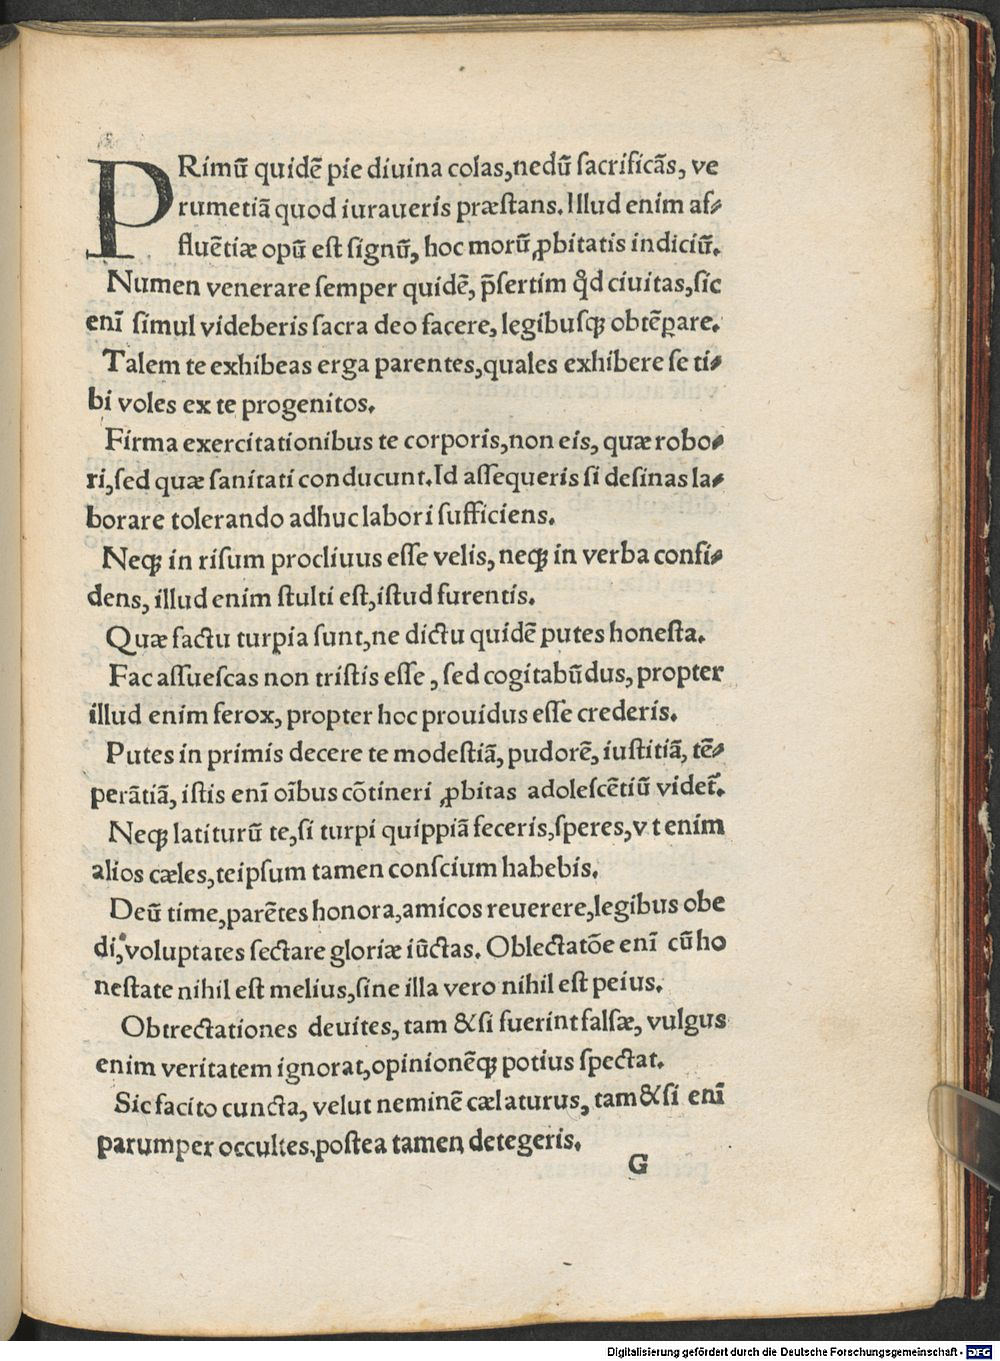 PRimū quidē pie diuina colas,nedū ſacrificās, ve
rumetiā quod iuraueris præſtans.Illud enim af⸗
fluētiæ opū eſt ſignū, hoc morū ꝓbitatis indiciū.
Numen venerare ſemper quidē, p̄ſertim qd̛ ciuitas,ſic
enī ſimul videberis ſacra deo facere, legibuſqꝫ obtēꝑare.
Talem te exhibeas erga parentes,quales exhibere ſe ti⸗
bi voles ex te progenitos.
Firma exercitationibus te corporis,non eis, quæ robo⸗
ri,ſed quæ ſanitati conducunt.Id aſſequeris ſi deſinas la⸗
borare tolerando adhuc labori ſufficiens.
Neqꝫ in riſum procliuus eſſe velis, neqꝫ in verba confi⸗
dens, illud enim ſtulti eſt,iſtud furentis.
Quæ factu turpia ſunt,ne dictu quidē putes honeſta.
Fac aſſueſcas non triſtis eſſe , ſed cogitabūdus, propter
illud enim ferox, propter hoc prouidus eſſe crederis.
Putes in primis decere te modeſtiā, pudorē, iuſtitiā, tē⸗
perātiā, iſtis enī oībus cōtineri ꝓbitas adoleſcētiū videt̄.
Neqꝫ latiturū te,ſi turpi quippiā feceris,ſperes,v t enim
alios cæles,teipſum tamen conſcium habebis.
Deū time,parētes honora,amicos reuerere,legibus obe
di,voluptates ſectare gloriæ iūctas. Oblectatōe enī cū ho
neſtate nihil eſt melius,ſine illa vero nihil eſt peius.
Obtrectationes deuites, tam &ſi fuerint falſæ, vulgus
enim veritatem ignorat,opinionēqꝫ potius ſpectat.
Sic facito cuncta, velut neminē cælaturus, tam&ſi enī
parumper occultes.poſtea tamen detegeris.
G
Digitalisierung gefördert durch die Deutsche Forschungsgemeinschaft - DFG